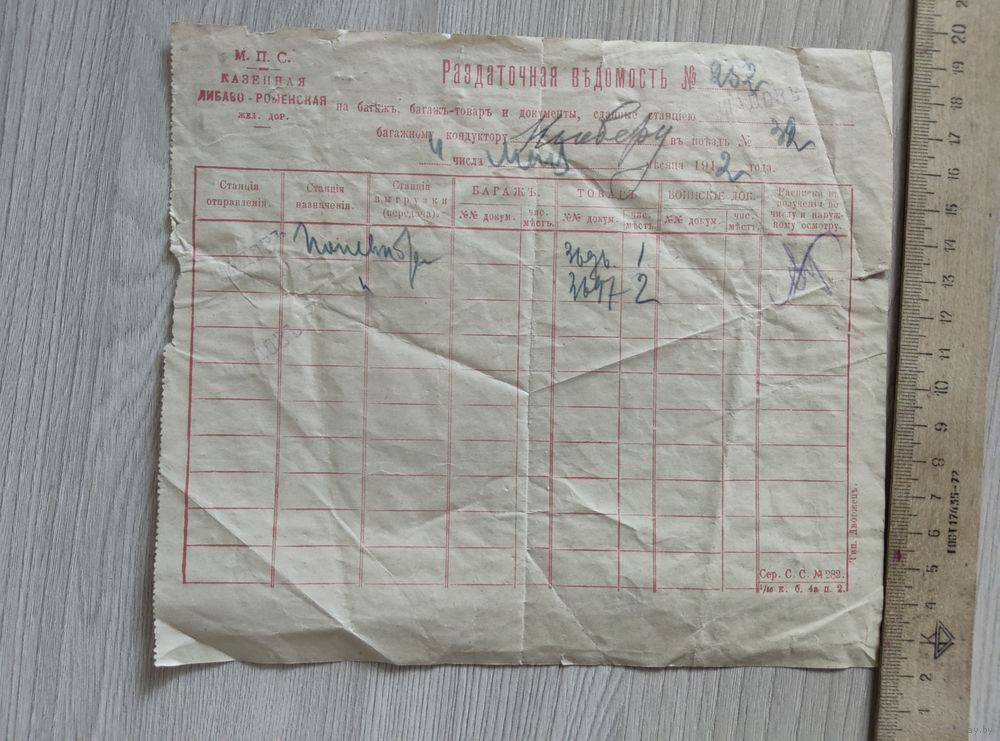 М. П. С.
КАЗЕННАЯ
ЛИБАВО-РОМЕНСКАЯ
ЖЕЛ. ДОР.
Раздаточная вѣдомость № 252
на багажъ, багажъ-товаръ и документы, сданные станціею ШАДОВЪ
багажному кондуктору въ поѣздъ №
4 числа мѣсяца 1912 года.
Станція отправленія.
Станція назначенія.
Станція выгрузки (передача).
БАГАЖЪ.
№№ докум.
чис. мѣстъ.
ТОВАРЪ
№№ докум.
чис. мѣстъ
ВОИНСКІЕ ДОК.
№№ докум.
чис. мѣстъ.
Расписка въ полученіи по числу и наруж- ному осмотру.
1
3697 2
Тип. Дворжецъ.
Сер. С. С. № 282.
1/16 к. б. 4в п. 2.
ГОСТ 17435-72
1 2 4 5 6 7 8 9 10 11 12 13 14 15 16 17 18 19 20
ay.by